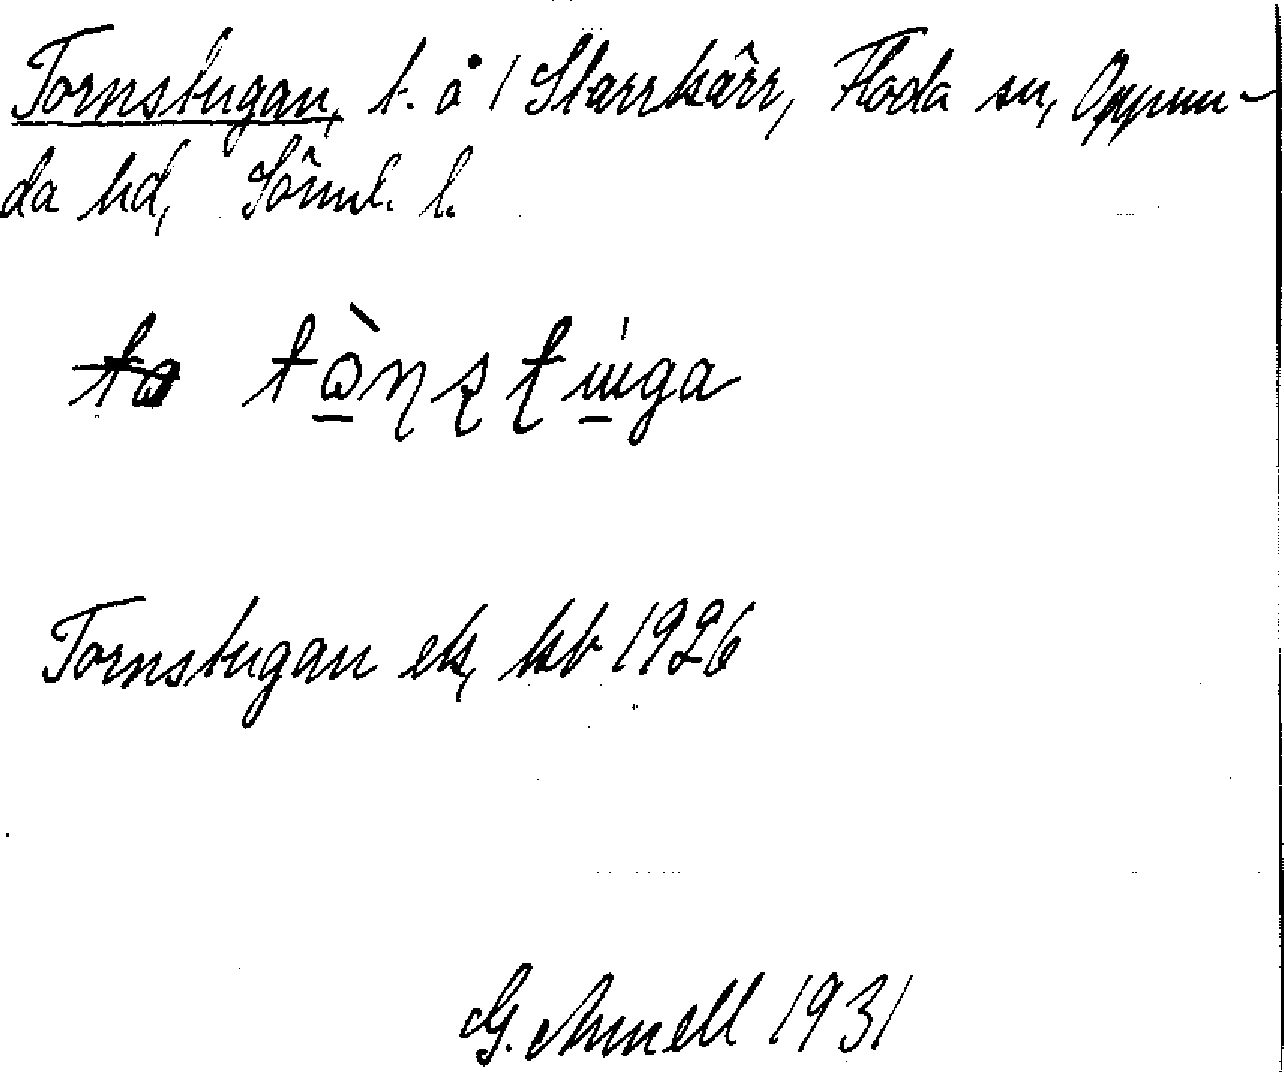 Tornstugan, t. å 1 Starrkärr, Floda sn, Oppun-
da hd, Söml. l.
tò̱ɳʂʈu̱̍ga
Tornstugan ek, kb 1926
G. Arnell 1931